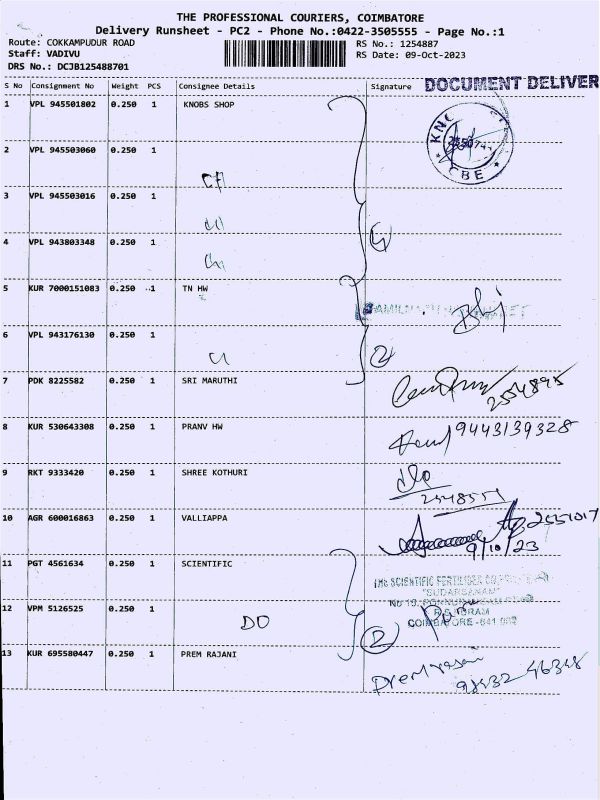 THE PROFESSIONAL COURIERS, COIMBATORE
Delivery Runsheet - PC2 - Phone No.:0422-3505555 - Page No.:1
Route: COKKAMPUDUR ROAD RS No.: 1254887
Staff: VADIVU RS Date: 09-Oct-2023
DRS No.: DCJB125488701
DOCUMENT DELIVER
S No Consignment No Weight PCS Consignee Details Signature
1 VPL 945501802 0.250 1 KNOBS SHOP
CBE
2 VPL 945503060 0.250 1
3 VPL 945503016 0.250 1
4 VPL 943803348 0.250 1
4
5 KUR 7000151083 0.250 1 TN HW
6 VPL 943176130 0.250 1
2
7 PDK 8225582 0.250 1 SRI MARUTHI
2554895
8 KUR 530643308 0.250 1 PRANV HW
9443139328
9 RKT 9333420 0.250 1 SHREE KOTHURI
10 AGR 600016863 0.250 1 VALLIAPPA
2551017
9/10/23
11 PGT 4561634 0.250 1 SCIENTIFIC
THE SCIENTIFIC FERTILISER CO.
"SUDARSANAM"
12 VPM 5126525 0.250 1
DO
2
R.S. PURAM
COIMBATORE - 641 002
13 KUR 695580447 0.250 1 PREM RAJANI
Prem rajani
98432 46348